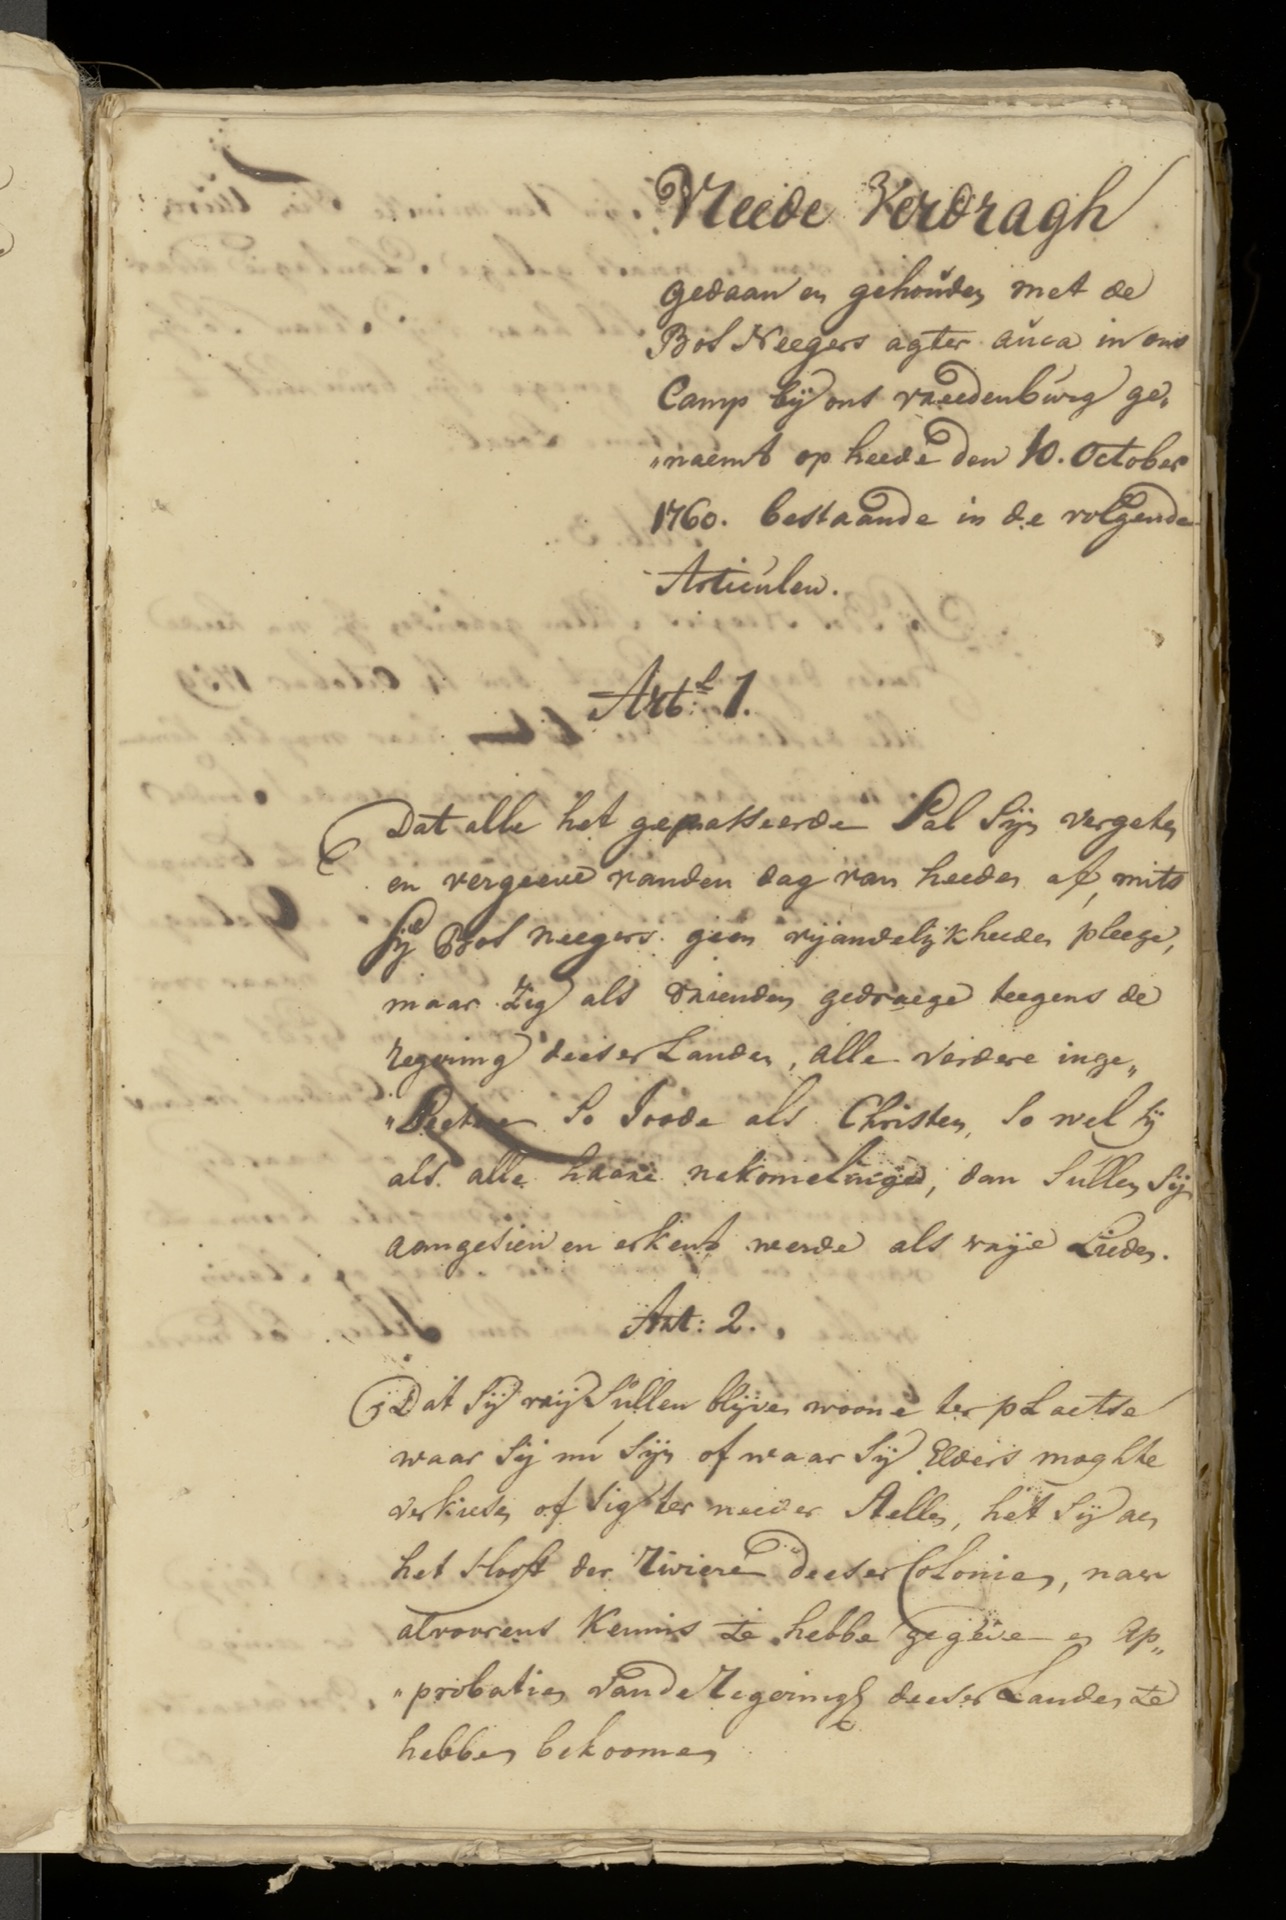 Vreede Verdragh
gedaan en gehouden met de
Bos Neegers agter auca in ons
Camp bij ons vreedenburg ge„
„naemt op heede den 10. October
1760. bestaande in de volgende
Articulen.
Art:l 1.
Dat alle het gepasseerde Sal Sijn vergeten
en vergeeve vanden dag van heeden af, mits
Sij Bos neegers geen vijandelijkheeden pleege,
maar Zig als vrienden gedraege teegens de
regering deeser Landen, alle verdere inge„
„Seetene So Joode als Christen, So wel Sij
als alle haare nakomelinge, dan Sullen Sij
aangesien en erkent werde als vrije Lieden.
Art: 2.
Dat Sij vrij Sullen blijven woone ter plaetse
waar Sij nu Sijn of waar Sij Elders moghte
verkiesen of Sig ter needer Stellen, het Sij aen
het Hooft der Riviere deeser Colonien, naer
alvoorens Kennis te hebbe gegeeve en Ap„
„probatien vande Regeringh deeser Landen te
hebben bekoomen